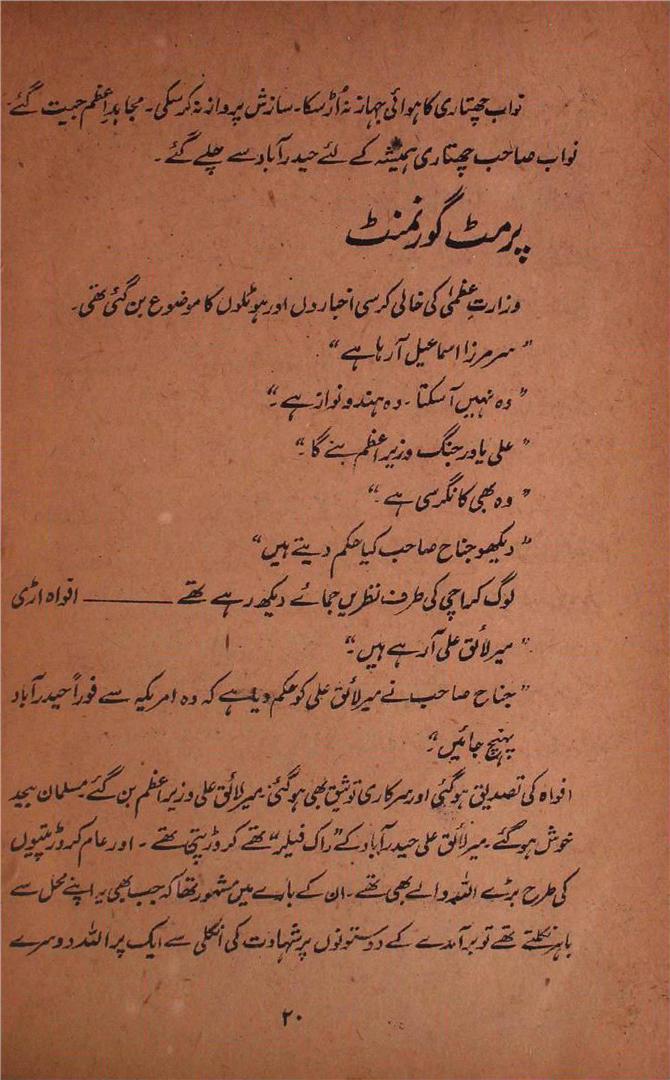 نواب چھتاری کا ہوائی جہاز نہ اُڑ سکا۔ سازش پرواز نہ کر سکی۔ مجاہدِ اعظم جیت گئے۔
نواب صاحب چھتاری ہمیشہ کے لئے حیدرآباد سے چلے گئے۔
پرمٹ گورنمنٹ
وزارتِ عظمیٰ کی خالی کرسی اخباروں اور ہوٹلوں کا موضوع بن گئی تھی۔
"سر مرزا اسماعیل آ رہا ہے"
"وہ نہیں آ سکتا۔ وہ ہندو نواز ہے۔"
"علی یاور جنگ وزیر اعظم بنے گا۔"
"وہ بھی کانگرسی ہے۔"
"دیکھو جناح صاحب کیا حکم دیتے ہیں"
لوگ کراچی کی طرف نظریں جمائے دیکھ رہے تھے ——— افواہ اڑی
"میر لائق علی آ رہے ہیں۔"
"جناح صاحب نے میر لائق علی کو حکم دیا ہے کہ وہ امریکہ سے فوراً حیدرآباد
پہنچ جائیں۔"
افواہ کی تصدیق ہو گئی اور سرکاری توثیق بھی ہو گئی۔ میر لائق علی وزیر اعظم بن گئے۔ مسلمان بیحد
خوش ہو گئے۔ میر لائق علی حیدرآباد کے "راک فیلر" تھے کروڑ پتی تھے۔ اور عام کروڑ پتیوں
کی طرح بڑے اللہ والے بھی تھے۔ ان کے بارے میں مشہور تھا کہ جب بھی یہ اپنے محل سے
باہر نکلتے تھے تو برآمدے کے دو ستونوں پر شہادت کی انگلی سے ایک پر اللہ دوسرے
۲۰